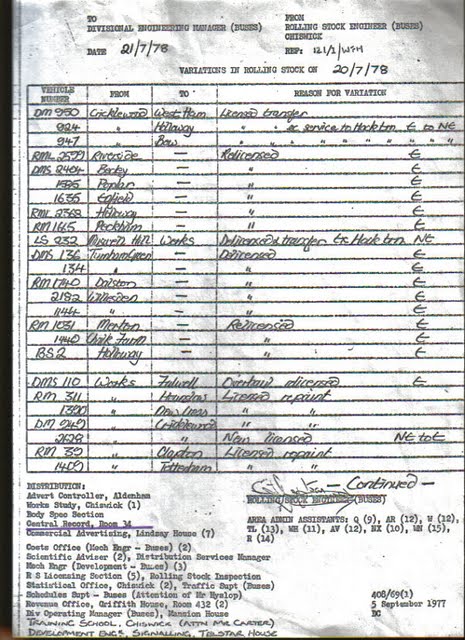 TO
FROM
DIVISIONAL ENGINEERING MANAGER (BUSES)
ROLLING STOCK ENGINEER (BUSES)
CHISWICK
DATE 21/7/78
REF: 121/2/WFH
VARIATIONS IN ROLLING STOCK ON 20/7/78
VEHICLE NUMBER FROM TO REASON FOR VARIATION
DM 950 Cricklewood West Ham Licensed transfer
924 " Holloway " " ex service to Hackton E to NE
947 " Bow " " " " " " "
RML 2599 Riverside — Relicensed E
DMS 2404 Barking — " E
1525 Poplar — " E
1635 Enfield — " E
RML 2368 Holloway — " E
RM 1145 Peckham — " E
LS 232 Muswell Hill Works Delicensed & transfer Ex Hack tm NE
DMS 136 Turnham Green — Delicensed E
134 " — " E
RM 1740 Dalston — " E
2192 Willesden — " E
1144 " — " E
RM 1031 Merton — Relicensed E
1440 Chalk Farm — " E
BS 2 Holloway — " E
DMS 110 Works Fulwell Overhaul relicensed E
RM 311 " Hounslow Licensed repaint
1390 " New Cross " "
DM " Cricklewood " "
2628 " " New licensed NE to E
RM 39 " Clapton Licensed repaint
1409 " Tottenham " "
— Continued —
DISTRIBUTION:
ROLLING STOCK ENGINEER (BUSES)
Advert Controller, Aldenham
Works Study, Chiswick (1)
Body Spec Section
Central Record, Room 34
Commercial Advertising, Lindsay House (7)
AREA ADMIN ASSISTANTS: Q (9), AR (12), W (12),
TL (13), WH (11), AV (12), NX (10), WN (15),
R (14)
Costs Office (Mech Engr - Buses) (2)
Scientific Adviser (2), Distribution Services Manager
Mech Engr (Development - Buses) (3)
R S Licensing Section (5), Rolling Stock Inspection
Statistical Office, Chiswick (2), Traffic Supt (Buses)
Schedules Supt - Buses (Attention of Mr Hyslop)
408/69(1)
Revenue Office, Griffith House, Room 432 (2)
5 September 1977
Div Operating Manager (Buses), Mansion House
BC
TRAINING SCHOOL, CHISWICK (ATTN MR CARTER)
DEVELOPMENT ENGR. SIGNALLING, TELSTAR HOUSE